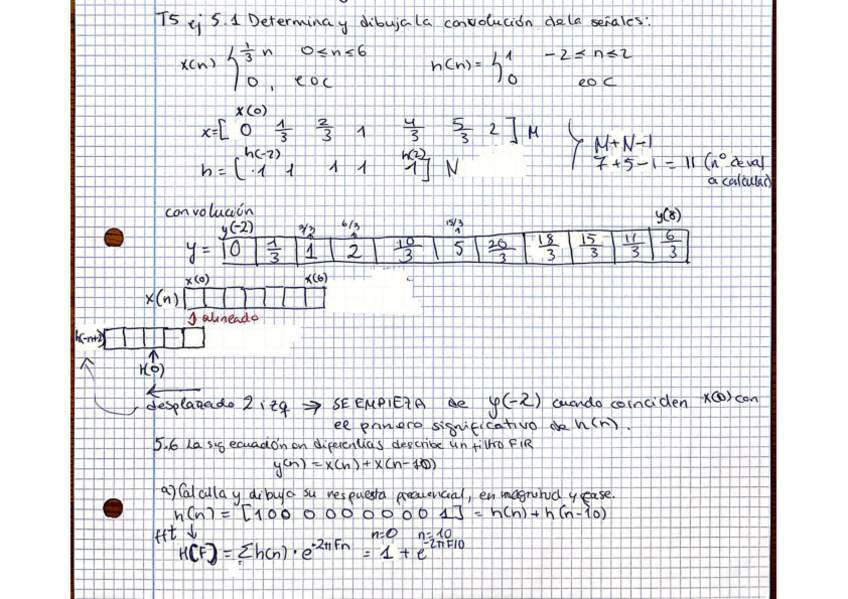 T5 ej 5.1 Determina y dibuja la convolución de la señales:
x(n) { 1/3 n 0≤n≤6
0, eoc
h(n) = { 1 -2≤n≤2
0 eoc
x(0)
x=[ 0 1/3 2/3 1 4/3 5/3 2 ] M
h(-2) h(2)
h = [ 1 1 1 1 1 ] N
M+N-1
7+5-1 = 11 (nº de val
a calcular)
convolución
y(-2) 3/3 6/3 15/3 y(8)
y = 0 1/3 1 2 10/3 5 20/3 18/3 15/3 11/3 6/3
x(0) x(6)
x(n)
alineado
h(-n+2)
h(0)
desplazado 2 izq ⇒ SE EMPIEZA de y(-2) cuando coinciden x(0) con
el primero significativo de h(n).
5.6 La sig ecuación en diferencias describe un filtro FIR
y(n) = x(n) + x(n-10)
a) Calcula y dibuja su respuesta frecuencial, en magnitud y fase.
h(n) = [1 0 0 0 0 0 0 0 0 0 1] = h(n) + h(n-10)
fft ↓ n=0 n=10
H(F) = Σh(n) · e^-2πFn = 1 + e^-2πF10